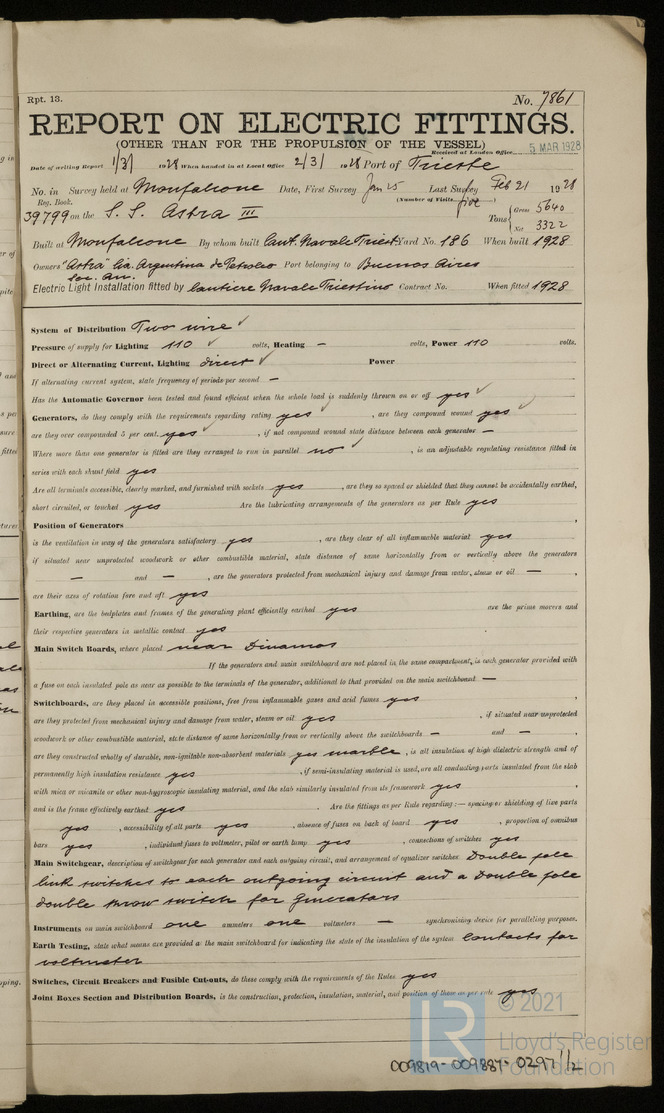 Rpt. 13.
No. 7861
REPORT ON ELECTRIC FITTINGS.
(OTHER THAN FOR THE PROPULSION OF THE VESSEL)
Received at London Office 5 MAR 1928
Date of writing Report 1/3/ 1928 When handed in at Local Office 2/3/ 1928 Port of Trieste
No. in Survey held at Monfalcone Date, First Survey Jan 25 Last Survey Feb 21 1928
Reg. Book. (Number of Visits five)
39799 on the S. S. Astra III Tons { Gross 5640
Net 3322
Built at Monfalcone By whom built Cant. Navale Triest. Yard No. 186 When built 1928
Owners "Astra" Cia. Argentina de Petroleo Port belonging to Buenos Aires
Soc. An.
Electric Light Installation fitted by Cantiere Navale Triestino Contract No. When fitted 1928
System of Distribution Two wire ✓
Pressure of supply for Lighting 110 ✓ volts, Heating – volts, Power 110 volts.
Direct or Alternating Current, Lighting direct ✓ Power
If alternating current system, state frequency of periods per second –
Has the Automatic Governor been tested and found efficient when the whole load is suddenly thrown on or off yes ✓
Generators, do they comply with the requirements regarding rating yes ✓ , are they compound wound yes ✓
are they over compounded 5 per cent. yes ✓ , if not compound wound state distance between each generator –
Where more than one generator is fitted are they arranged to run in parallel no ✓ , is an adjustable regulating resistance fitted in
series with each shunt field yes
Are all terminals accessible, clearly marked, and furnished with sockets yes , are they so spaced or shielded that they cannot be accidentally earthed,
short circuited, or touched yes Are the lubricating arrangements of the generators as per Rule yes
Position of Generators
is the ventilation in way of the generators satisfactory yes , are they clear of all inflammable material yes
if situated near unprotected woodwork or other combustible material, state distance of same horizontally from or vertically above the generators
– and – , are the generators protected from mechanical injury and damage from water, steam or oil – ,
are their axes of rotation fore and aft yes
Earthing, are the bedplates and frames of the generating plant efficiently earthed yes are the prime movers and
their respective generators in metallic contact yes
Main Switch Boards, where placed near Dinamos
If the generators and main switchboard are not placed in the same compartment, is each generator provided with
a fuse on each insulated pole as near as possible to the terminals of the generator, additional to that provided on the main switchboard –
Switchboards, are they placed in accessible positions, free from inflammable gases and acid fumes yes
are they protected from mechanical injury and damage from water, steam or oil yes , if situated near unprotected
woodwork or other combustible material, state distance of same horizontally from or vertically above the switchboards – and – ,
are they constructed wholly of durable, non-ignitable non-absorbent materials yes marble , is all insulation of high dielectric strength and of
permanently high insulation resistance yes , if semi-insulating material is used, are all conducting parts insulated from the slab
with mica or micanite or other non-hygroscopic insulating material, and the slab similarly insulated from its framework yes ,
and is the frame effectively earthed yes . Are the fittings as per Rule regarding:— spacing or shielding of live parts
yes , accessibility of all parts yes , absence of fuses on back of board yes , proportion of omnibus
bars yes , individual fuses to voltmeter, pilot or earth lamp yes , connections of switches yes
Main Switchgear, description of switchgear for each generator and each outgoing circuit, and arrangement of equalizer switches Double pole
link switches to each outgoing circuit and a Double pole
double throw switch for Generators
Instruments on main switchboard one ammeters one voltmeters – synchronising device for paralleling purposes.
Earth Testing, state what means are provided at the main switchboard for indicating the state of the insulation of the system Contacts for
voltmeter
Switches, Circuit Breakers and Fusible Cut-outs, do these comply with the requirements of the Rules yes
Joint Boxes Section and Distribution Boards, is the construction, protection, insulation, material, and position of these as per rule yes
© 2021
LR
Lloyd's Register
Foundation
009819-009887-0297 1/2